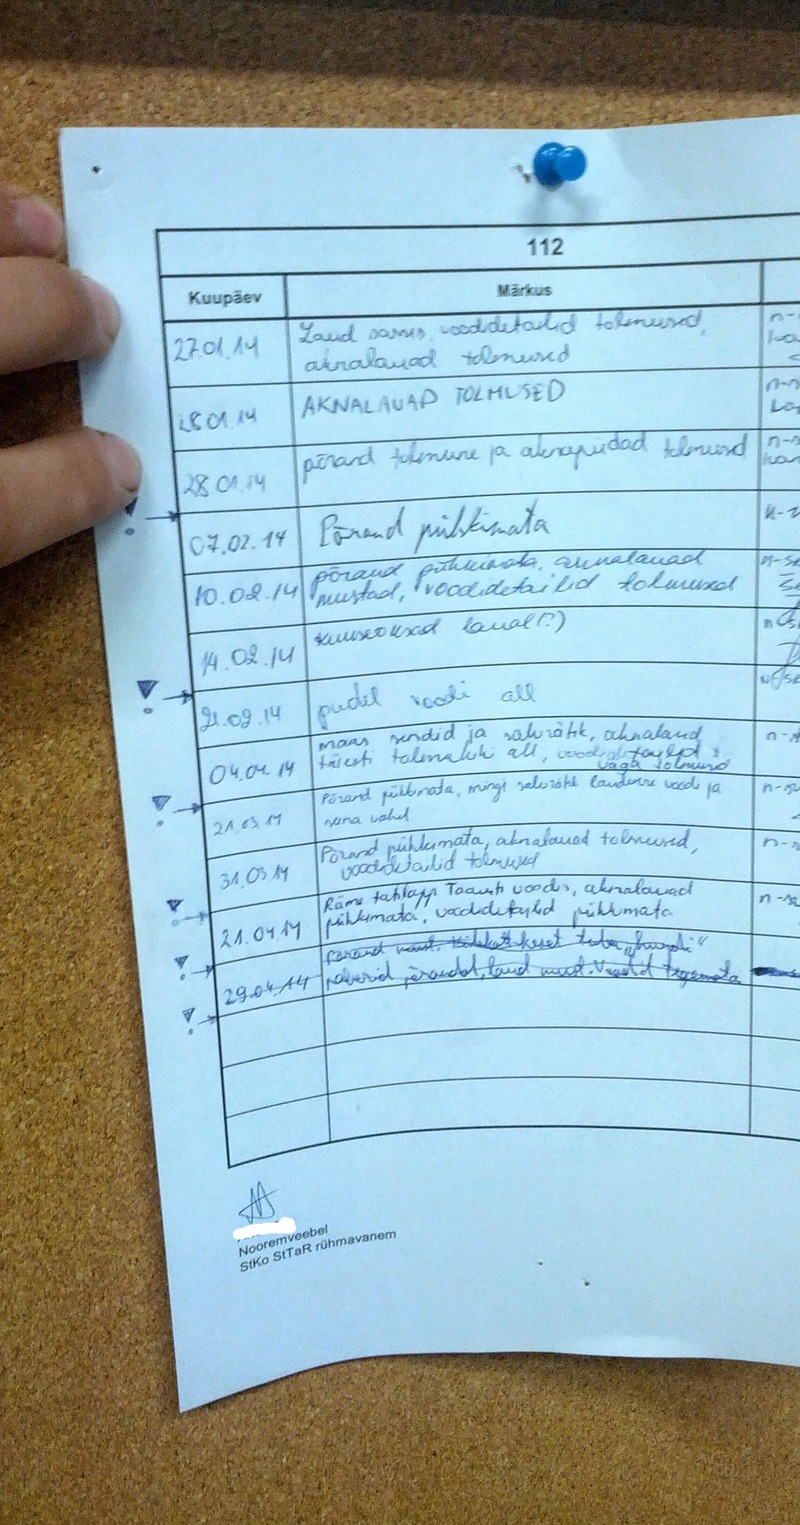 112
Kuupäev Märkus
27.01.14 Laud sassis, voodidetailid tolmused,
aknalauad tolmused
28.01.14 AKNALAUAD TOLMUSED
28.01.14 põrand tolmune ja aknapuidad tolmused
07.02.14 Põrand pühkimata
10.02.14 põrand pühkimata, aknalauad
mustad, voodidetailid tolmused
14.02.14 kuuseoksad laual(?)
21.02.14 pudel voodi all
04.04.14 maas sendid ja salvrätik, aknalaud
täiesti tolmukihi all, voodidetailid
väga tolmused
21.03.14 Põrand pühkimata, mingi salvrätik voodi ja
seina vahel
31.03.14 Põrand pühkimata, aknalauad tolmused,
voodidetailid tolmused
21.04.14 voodis, aknalauad
pühkimata, voodidetailid pühkimata
29.04.14 põrand keset tuba
paberid põrandal, laud must. Voodid tegemata
Nooremveebel
StKo StTaR rühmavanem